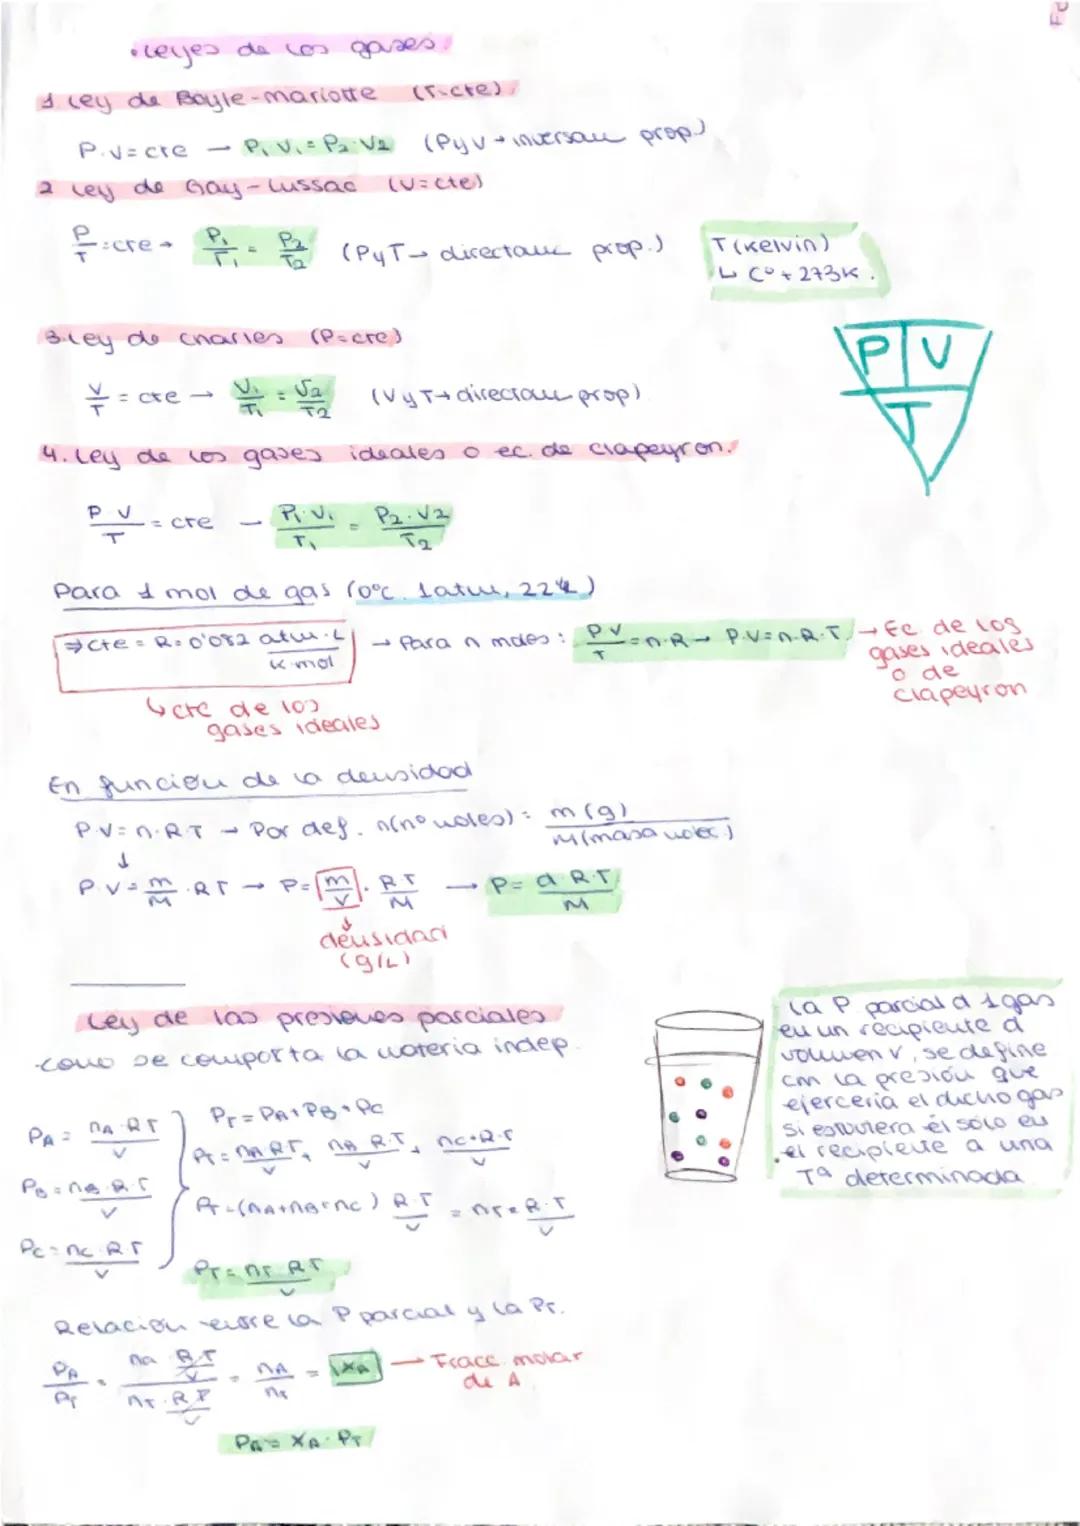 • Leyes de los gases.
1 Ley de Boyle-mariotte (T=cte)
P.V=cte → P₁.V₁= P₂.V₂ (P y V → inversam prop.)
2 Ley de Gay-Lussac (V=cte)
P/T = cte → P₁/T₁ = P₂/T₂ (P y T → directam prop.)
T (Kelvin)
↳ Cº + 273K.
3. Ley de charles (P=cte)
V/T = cte → V₁/T₁ = V₂/T₂ (V y T → directam prop)
P V
T
4. Ley de los gases ideales o ec. de clapeyron.
P V/T = cte → P₁.V₁/T₁ = P₂.V₂/T₂
Para 1 mol de gas (0ºc. 1atm, 22'4L)
⇒ cte = R = 0'082 atm.L/K.mol → Para n moles: P V/T = n.R → P.V=n.R.T. → Ec. de los gases ideales o de clapeyron
↳ cte de los gases ideales
En función de la densidad
P.V= n.R.T → Por def. n(nº moles) = m (g)/M(masa molec.)
↓
P.V = m/M .RT → P= m/V . R.T/M → P= d.R.T/M
↓
densidad
(g/L)
Ley de las presiones parciales
como se comporta la materia indep.
La P. parcial d 1 gas
en un recipiente d
volumen V, se define
cm la presión que
ejercería el dicho gas
si estuviera él solo en
el recipiente a una
Tª determinada
PA = nA.RT/V
PT = PA+PB+PC
PT = nA.RT/V + nB.R.T/V + nC.R.T/V
PB = nB.R.T/V
PT = (nA+nB+nC) R.T/V = nT.R.T/V
PC = nC.RT/V
PT = nT.RT/V
Relación entre la P parcial y la PT.
PA/PT = (nA R.T/V)/(nT.R.T/V) = nA/nT = XA → Fracc. molar de A
PA = XA.PT